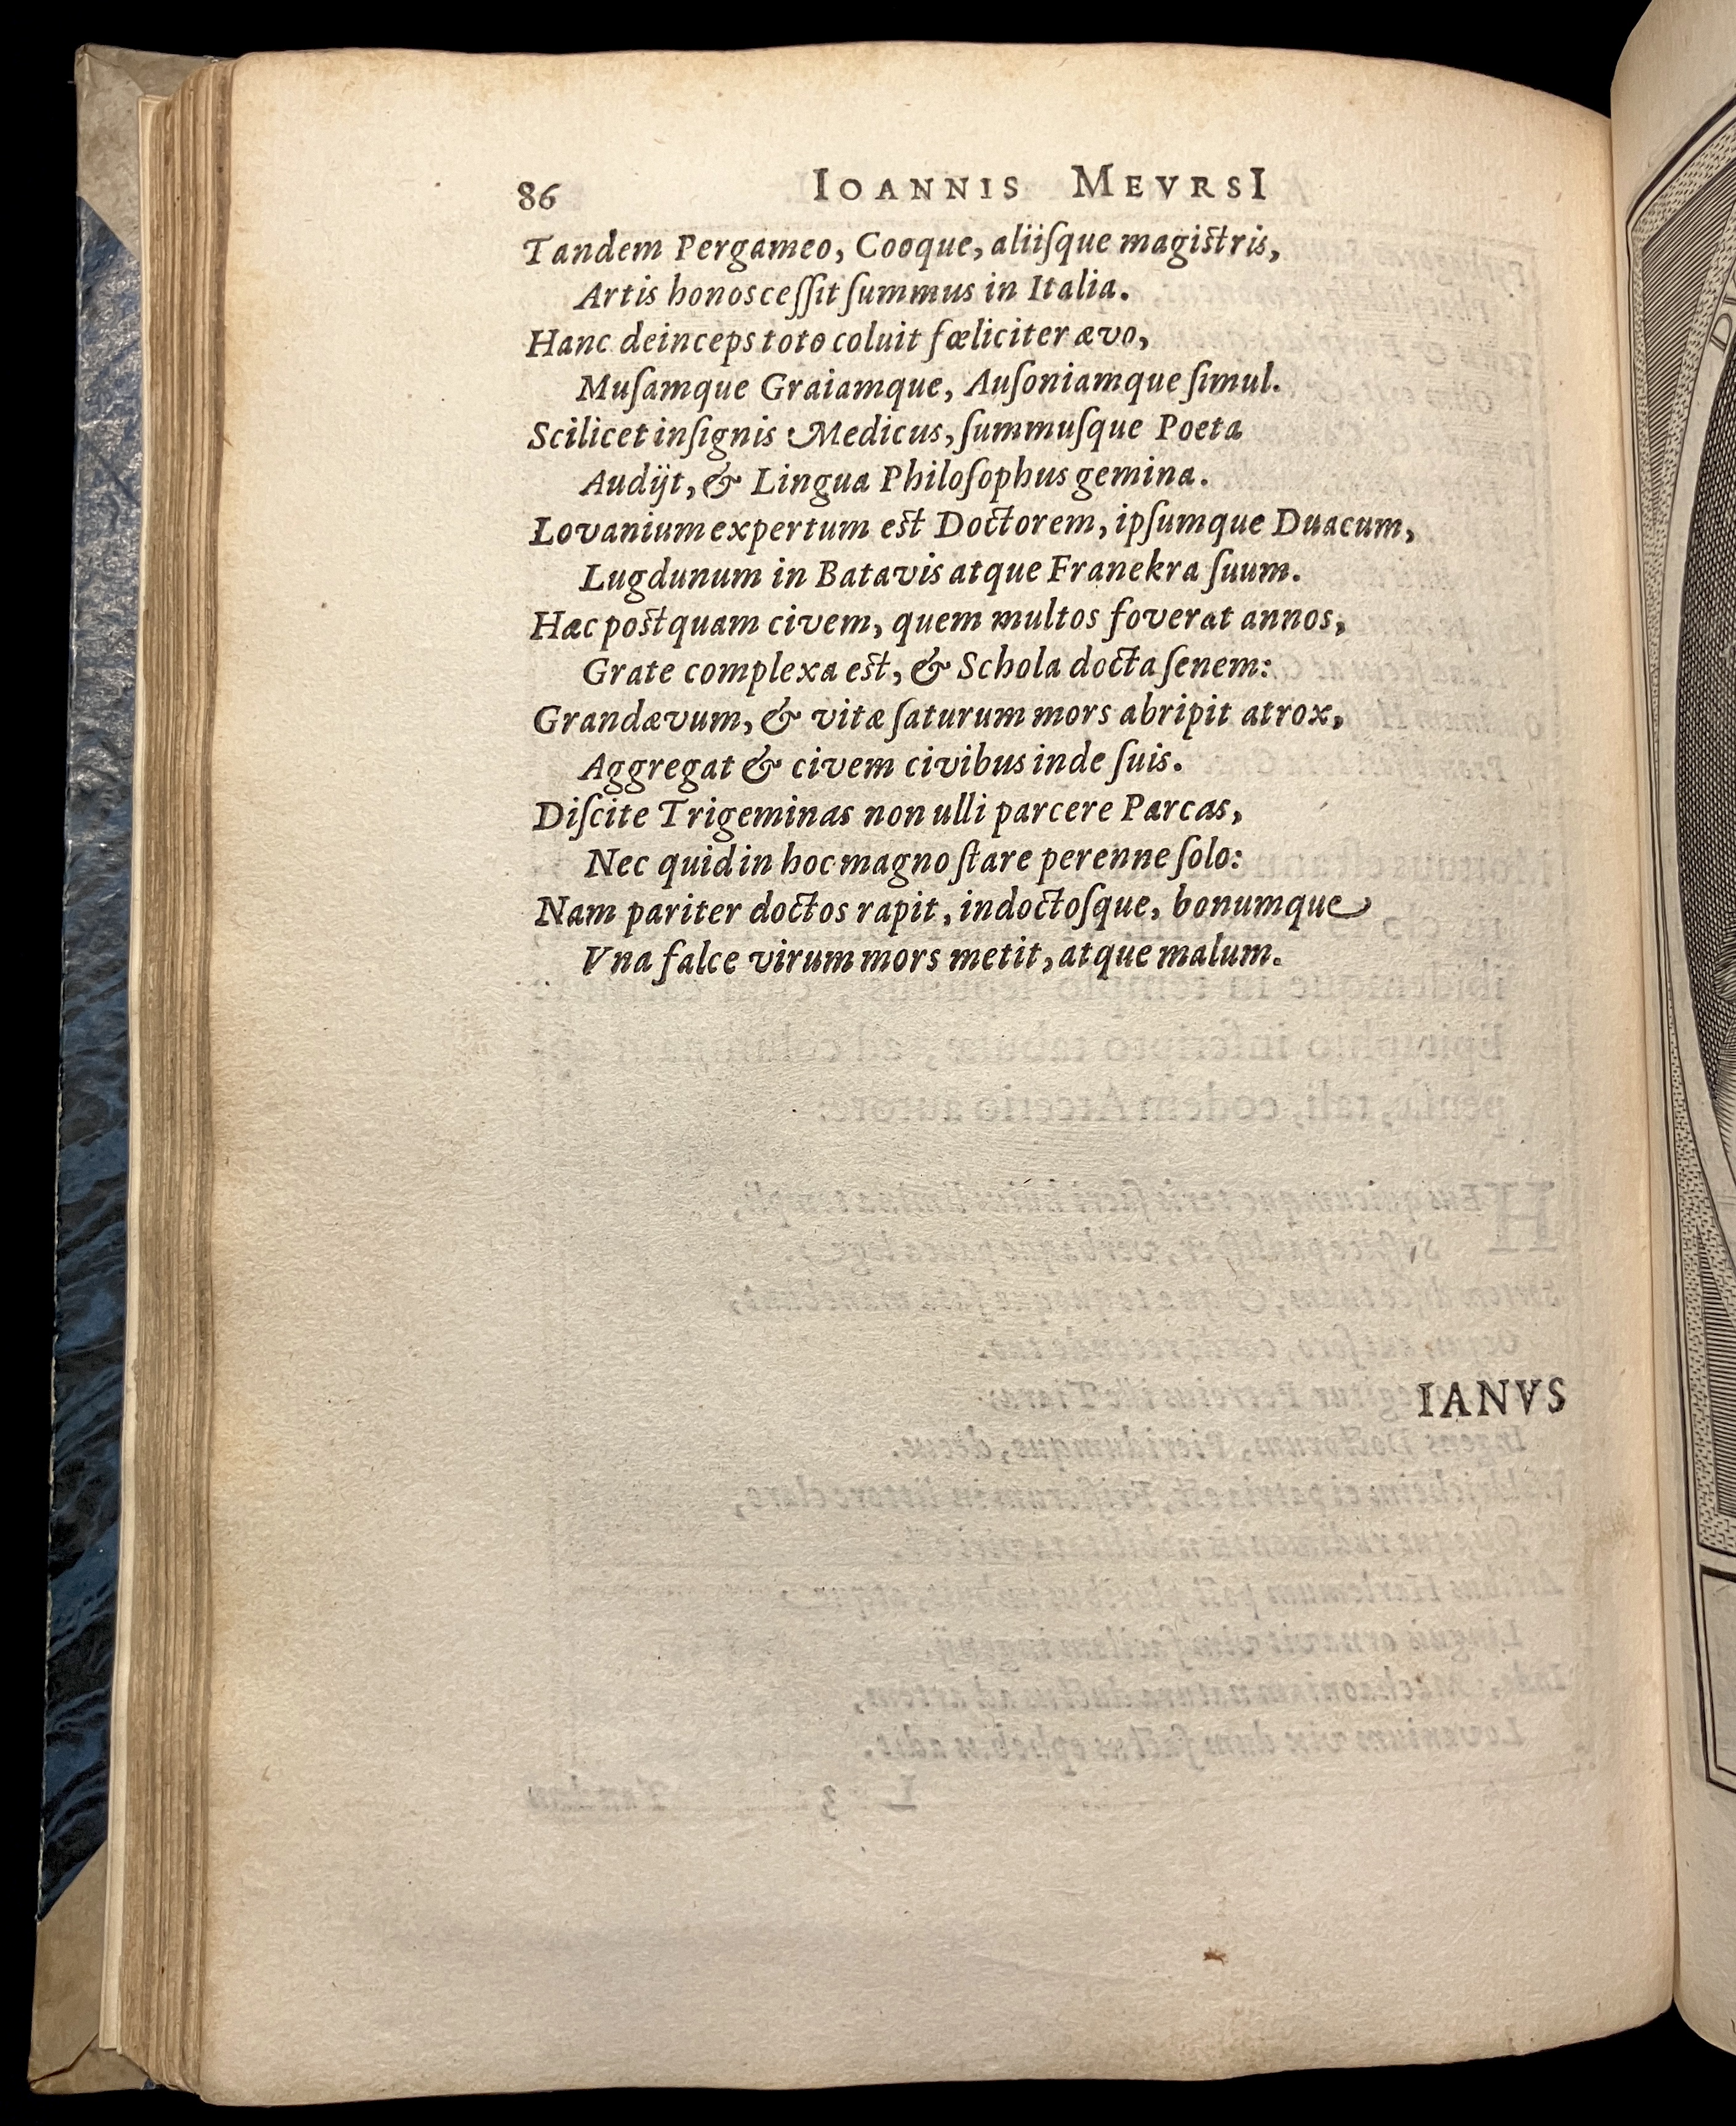 86 IOANNIS MEVRSI
Tandem Pergameo, Cooque, aliiſque magiſtris,
Artis honos ceſſit ſummus in Italia.
Hanc deinceps toto coluit fœliciter ævo,
Muſamque Graiamque, Auſoniamque ſimul.
Scilicet inſignis Medicus, ſummuſque Poeta
Audijt, & Lingua Philoſophus gemina.
Lovanium expertum eſt Doctorem, ipſumque Duacum,
Lugdunum in Batavis atque Franekra ſuum.
Hæc poſtquam civem, quem multos foverat annos,
Grate complexa eſt, & Schola docta ſenem:
Grandævum, & vitæ ſaturum mors abripit atrox,
Aggregat & civem civibus inde ſuis.
Diſcite Trigeminas non ulli parcere Parcas,
Nec quid in hoc magno ſtare perenne ſolo:
Nam pariter doctos rapit, indoctoſque, bonumque
Vna falce virum mors metit, atque malum.
IANVS